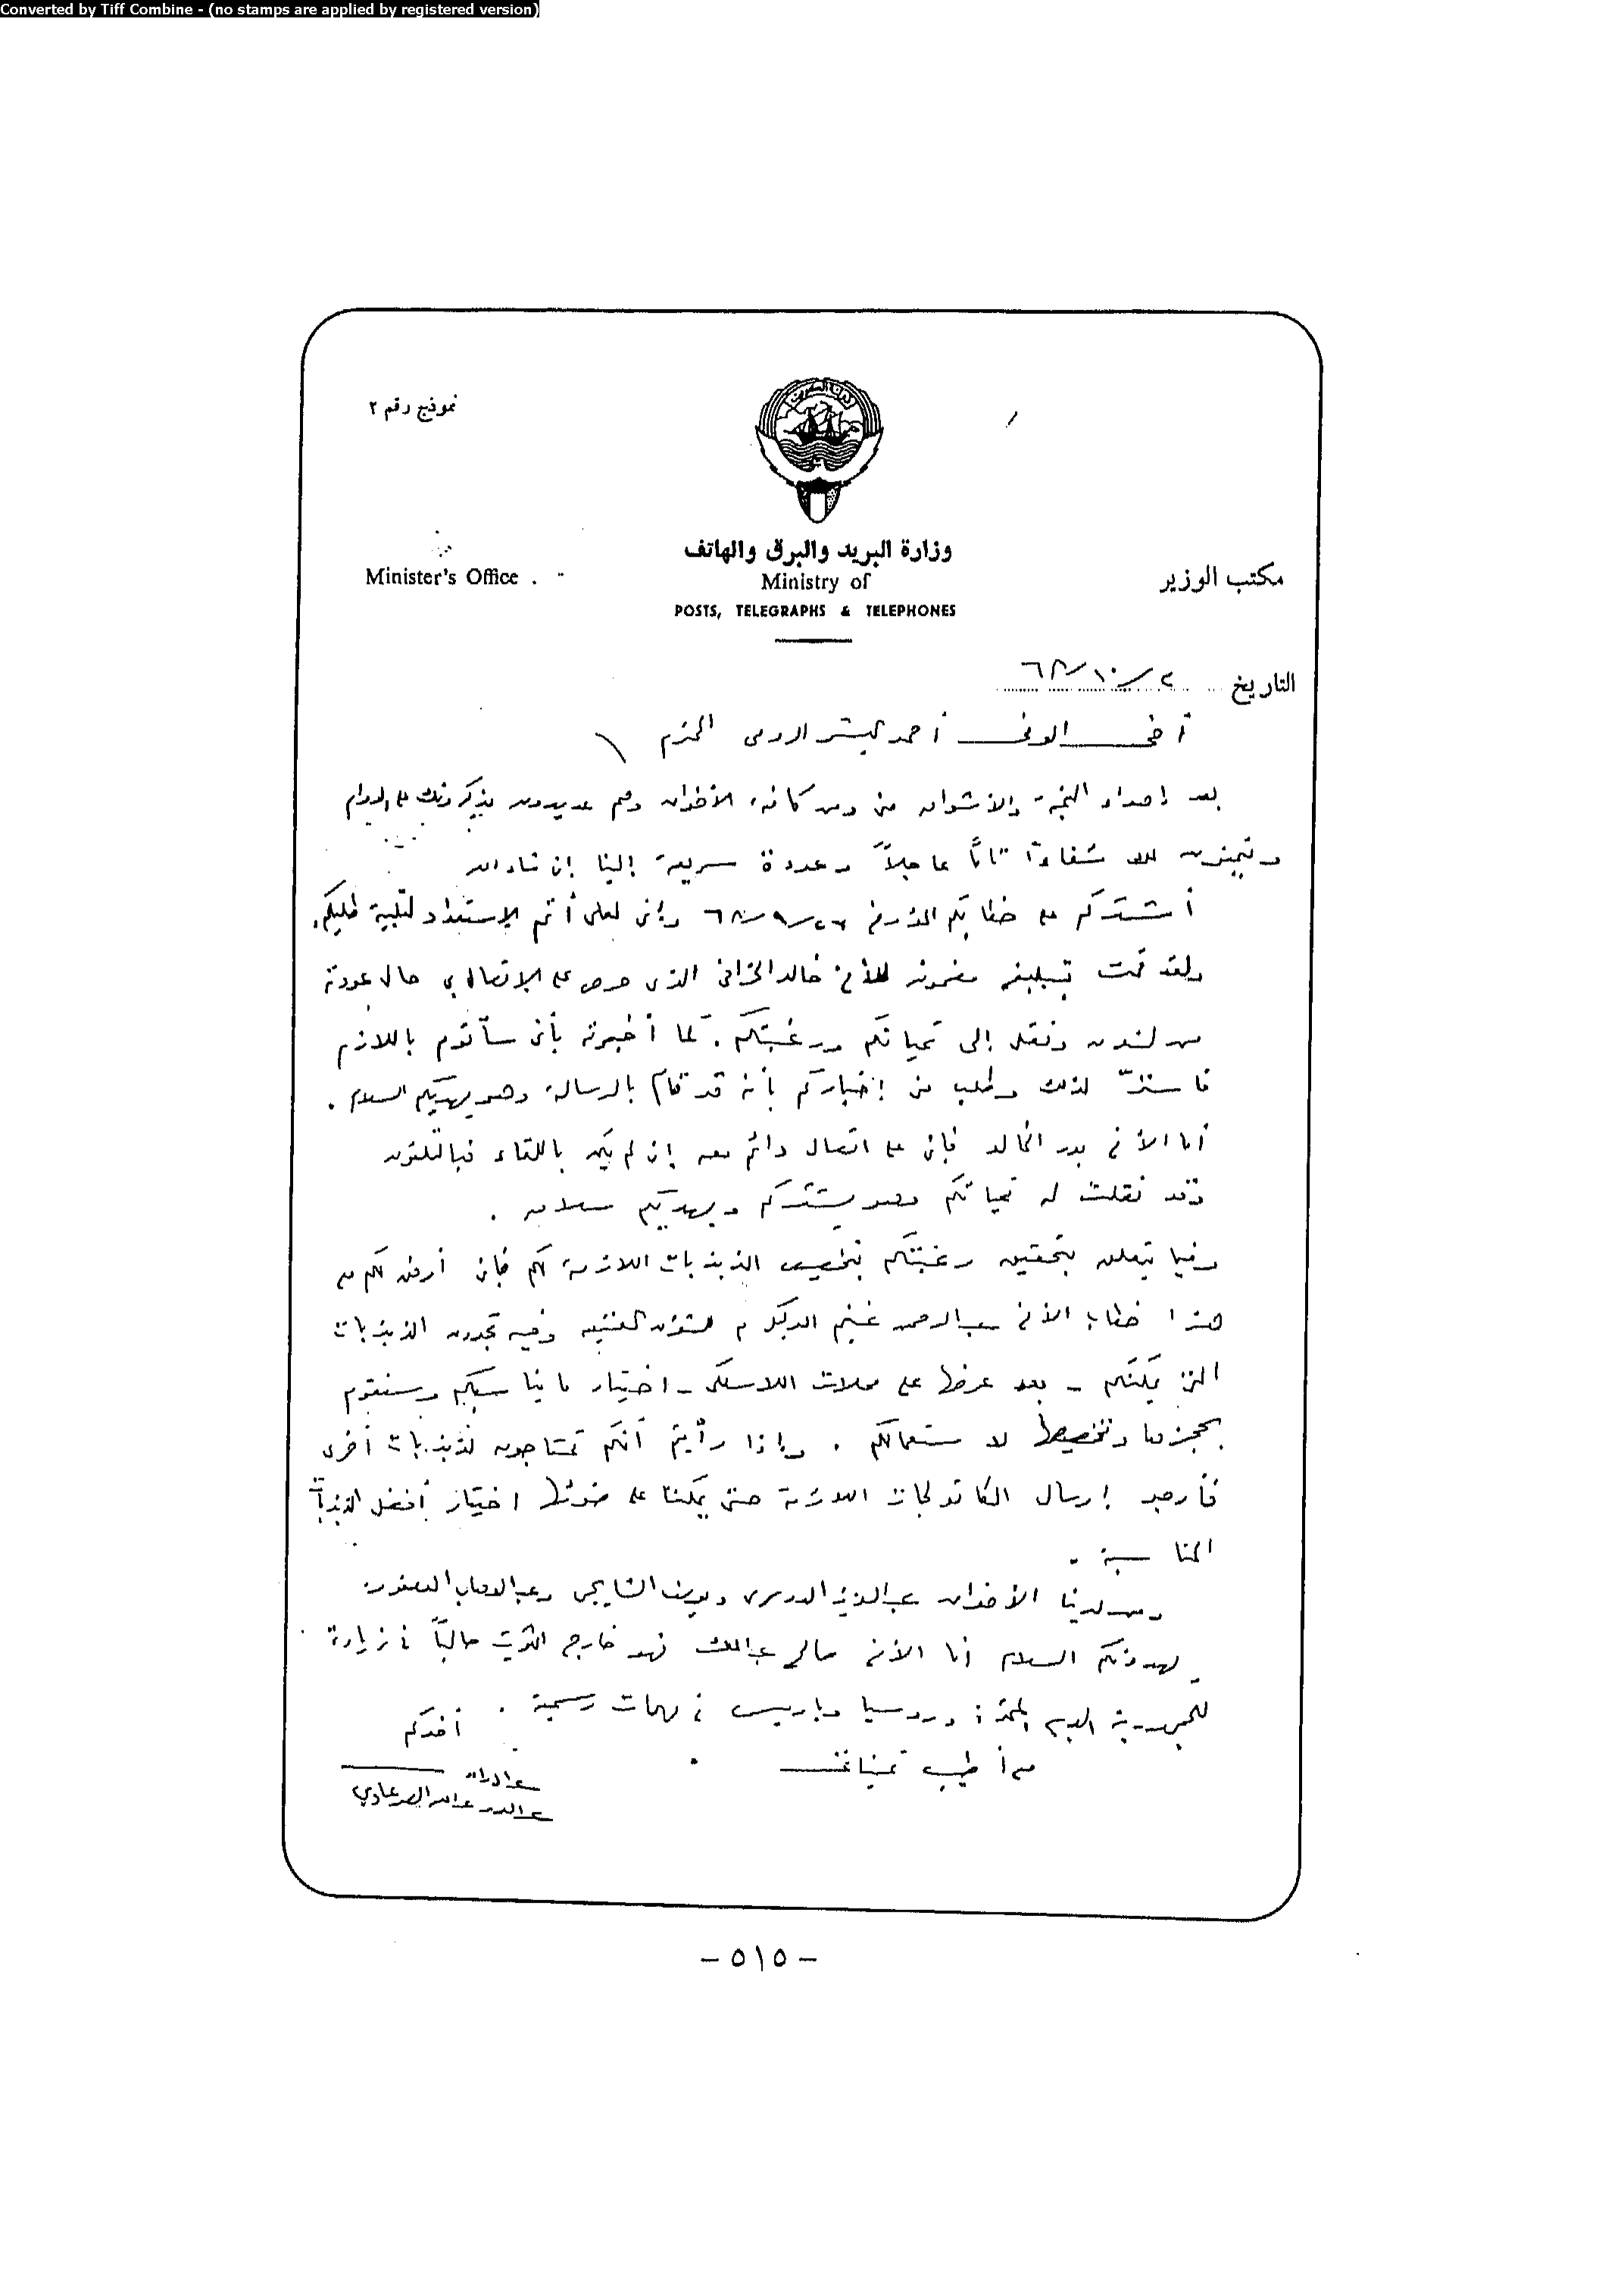 Converted by Tiff Combine - (no stamps are applied by registered version)
نموذج رقم ٢
وزارة البريد والبرق والهاتف
Minister's Office
Ministry of
مكتب الوزير
POSTS, TELEGRAPHS & TELEPHONES
التاريخ ٢/١٠/٦٨
أخي الوفي أحمد البشر الرومي المحترم
بعد إهداء التحية والأشواق مني ومن كافة الأخوان وهم عديدون يذكرونك على الدوام
ويتمنون لك شفاءً تاماً عاجلاً وعودة سريعة إلينا إن شاء الله
أشكركم على خطابكم المؤرخ ٢٦/٩/٦٨ وإني لعلى أتم الإستعداد لتلبية طلبكم.
ولقد قمت بتبليغ مضمونه للأخ خالد الخرافي الذي حرص على الإتصال بي حال عودته
من لندن ونقل إلي تحياتكم ورغبتكم. كما أخبرته بأني سأقوم باللازم
فاستر لذلك وطلب مني إخباركم بأنه قد قام بالرسالة وهو يهديكم السلام.
أما الأخ بدر الخالد فإني على اتصال دائم معه إن لم يكن باللقاء فبالتلفون
وقد نقلت له تحياتكم وهو يشكركم ويهديكم سلامه.
وفيما يتعلق بتحقيق رغبتكم بتخصيص الذبذبات اللازمة لكم فإني أرفق لكم مع
هذا خطاب الأخ عبدالرحمن غنيم الوكيل م للشؤون الفنية وفيه تجدون الذبذبات
التي يمكنكم - بعد عرضها على محلات اللاسلكي - اختيار ما يناسبكم وسنقوم
بحجزها وتخصيصها لاستعمالكم. وإذا رأيتم أنكم تحتاجون لذبذبات أخرى
فأرجو إرسال الكاتولجات اللازمة حتى يمكننا على ضوئها اختيار أفضل الذبذبات
المناسبة.
ومن لدينا الأخوان عبدالعزيز الدوسري ويوسف الشايجي وعبدالوهاب العصفور
يهدونكم السلام أما الأخ صالح عبدالملك فهو خارج الكويت حالياً في زيارة
للجمهورية العربية المتحدة وروسيا وباريس في مهمات رسمية.
أخوكم
مع أطيب تمنياتي
عبدالله الصرعاوي
- ٥١٥ -